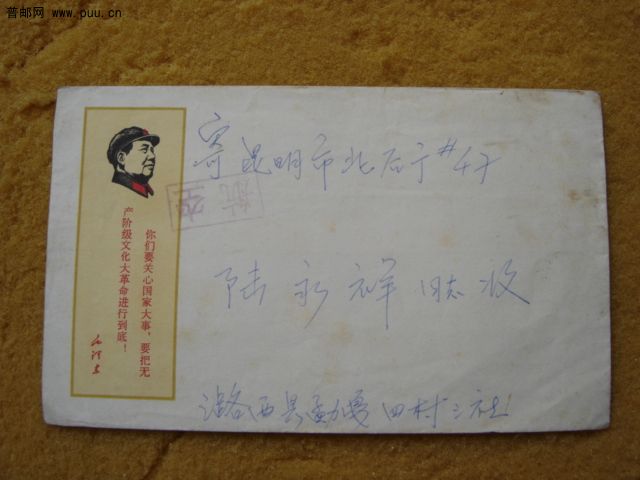 普邮网 www.puu.cn
寄昆明市北后宁#47
航空
你们要关心国家大事，要把无
产阶级文化大革命进行到底！
毛泽东
陆永祥同志收
潞西县勐戛四村三社